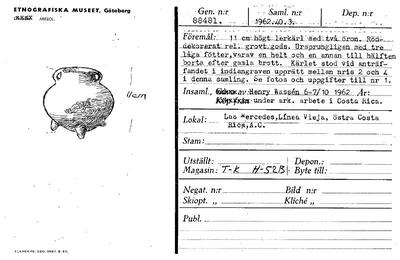 ETNOGRAFISKA MUSEET, Göteborg
ARKEOL.
11cm
Gen. n:r Saml. n:r Dep. n:r
88481. 1962.40.3.
Föremål: 11 cm högt lerkärl med två öron. Röd-
dekorerat rel. grovt gods. Ursprungligen med tre
låga fötter, varav en helt och en annan till hälften
borta efter gamla brott. Kärlet stod vid anträf-
fandet i indiangraven upprätt mellan nris 2 och 4
i denna samling. Se fotos och uppgifter till nr 1.
Insaml. Henry Wassén 6-7/10 1962 År:
Köp från: under ark. arbete i Costa Rica.
Lokal: Las Mercedes, Línea Vieja, Östra Costa
Rica, A.C.
Stam:
Utställt: Depon.:
Magasin: T-K H-52B Byte till:
Negat. n:r Bild n:r
Skiopt. „ Kliché „
Publ.